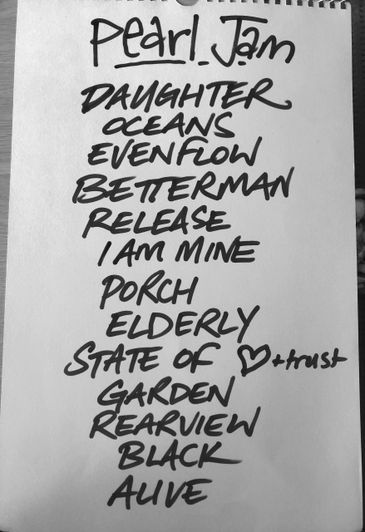 Pearl Jam
DAUGHTER
OCEANS
EVENFLOW
BETTERMAN
RELEASE
I AM MINE
PORCH
ELDERLY
STATE OF ♡+trust
GARDEN
REARVIEW
BLACK
ALIVE